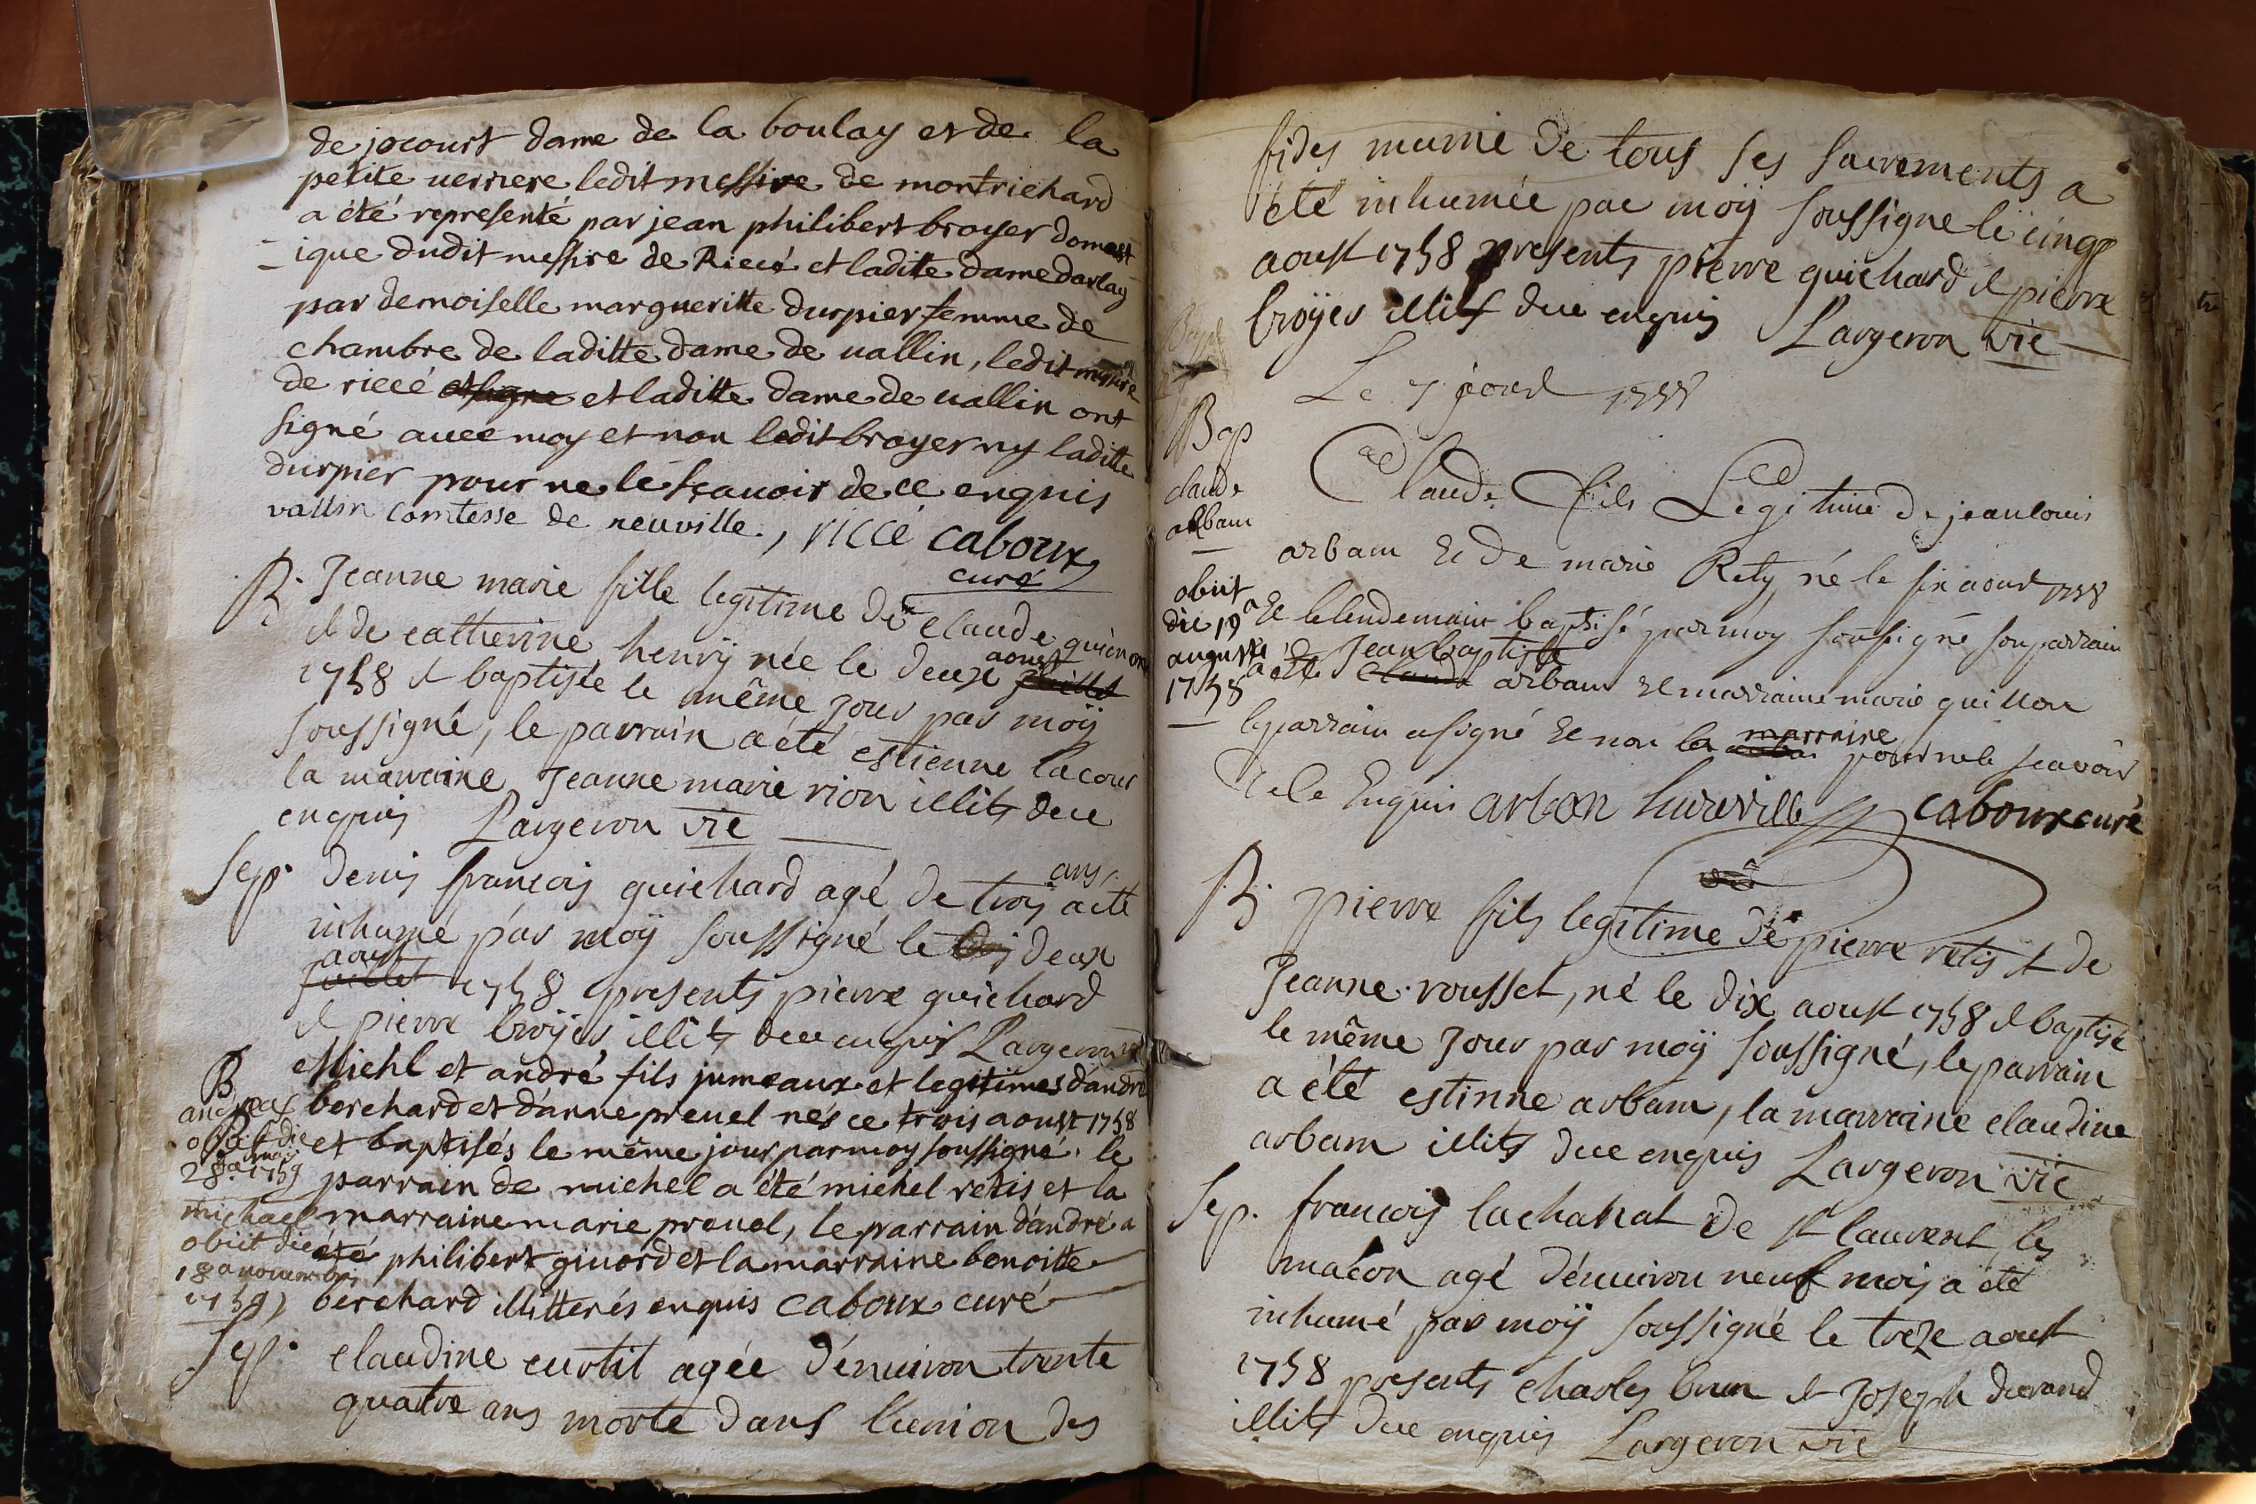 de jocourt dame de la boulay et de la
petite verriere ledit messire de montrichard
a été representé par jean philibert broyer domest
ique dudit messire de Riccé et ladite dame darlay
par demoiselle margueritte durpier femme de
chambre de laditte dame de vallin, ledit messire
de riccé et signé et laditte dame de vallin ont
signé avec moy et non ledit broyer ny laditte
durpier pour ne le sçavoir de ce enquis
vallin comtesse de neuville, riccé caboux
curé
B. Jeanne marie fille legitime de claude quinon
et de catherine henrÿ née le deux aoust juillet
1758 et baptisée le même jour par moÿ
soussigné, le parrain a été estienne lacour
la marraine Jeanne marie rion illits de ce
enquis Largeron vic
Sep. denis francois guichard agé de trois ans, a été
inhumé par moÿ soussigné le trois deux
aoust juillet 1758 presents pierre guichard
et pierre broÿer illits de ce enquis Largeron vic
B
andreas
obiit die
28a maij 1759
michael
obiit die
18a novembris
1759
Michel et andré fils jumeaux et legitimes d'andré
berchard et d'anne prevel nés ce trois aoust 1758
et baptisés le même jour par moy soussigné. le
parrain de michel a été michel retis et la
marraine marie prevel, le parrain d'andré a
été philibert givord et la marraine benoitte
berchard illitterés enquis caboux curé
Sep. claudine curtil agée d'environ trente
quatre ans morte dans l'union des
fides munie de tous ses sacrements a
été inhumée par moÿ soussigné le cinq
aoust 1758 presents pierre guichard et pierre
broÿer illits de ce enquis Largeron vic
Le 7 aoust 1758
Bap
claude
arbam
obiit
die 19a
augusti
1758
Claude fils Legitime de jean louis
arbam et de marie Rety né le six aoust 1758
et le lendemain baptisé par moy soussigné son parrain
a été Jean baptiste claude arbam et marraine marie guillon
le parrain a signé et non la marraine pour ne le scavoir
de ce Enquis arban hureville caboux curé
B. pierre fils legitime de pierre retis et de
Jeanne rousset, né le dix aoust 1758 et baptisé
le même jour par moÿ soussigné, le parrain
a été estinne arbam, la marraine claudine
arbam illits de ce enquis Largeron vic
Sep. francois lachanat de st laurent les
macon agé d'environ neuf mois a été
inhumé par moÿ soussigné le treze aoust
1758 presents charles brun et Joseph durand
illits de ce enquis Largeron vic